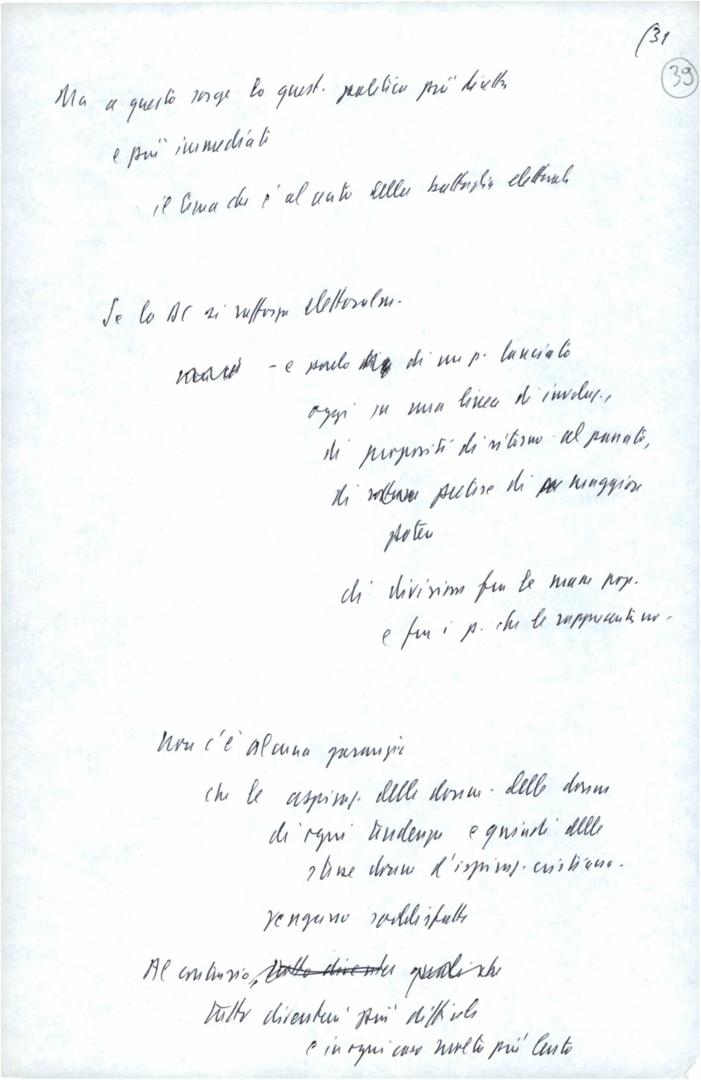 (31
39
Ma a questo sorge la quest. politica più diretta
e più immediata
il tema che è al centro della battaglia elettorale
Se la DC si rafforza elettoralm.
- e parlo di un p. lanciato
oggi su una linea di involuz.,
di propositi di ritorno al passato,
di pretese di maggiore
potere
di divisione fra le masse pop.
e fra i p. che le rappresentano -
Non c'è alcuna garanzia
che le aspiraz. delle donne - delle donne
di ogni tendenza e quindi delle
stesse donne d'ispiraz. cristiana -
vengano soddisfatte
Al contrario, tutto diventa
tutto diventerà più difficile
e in ogni caso molto più lento